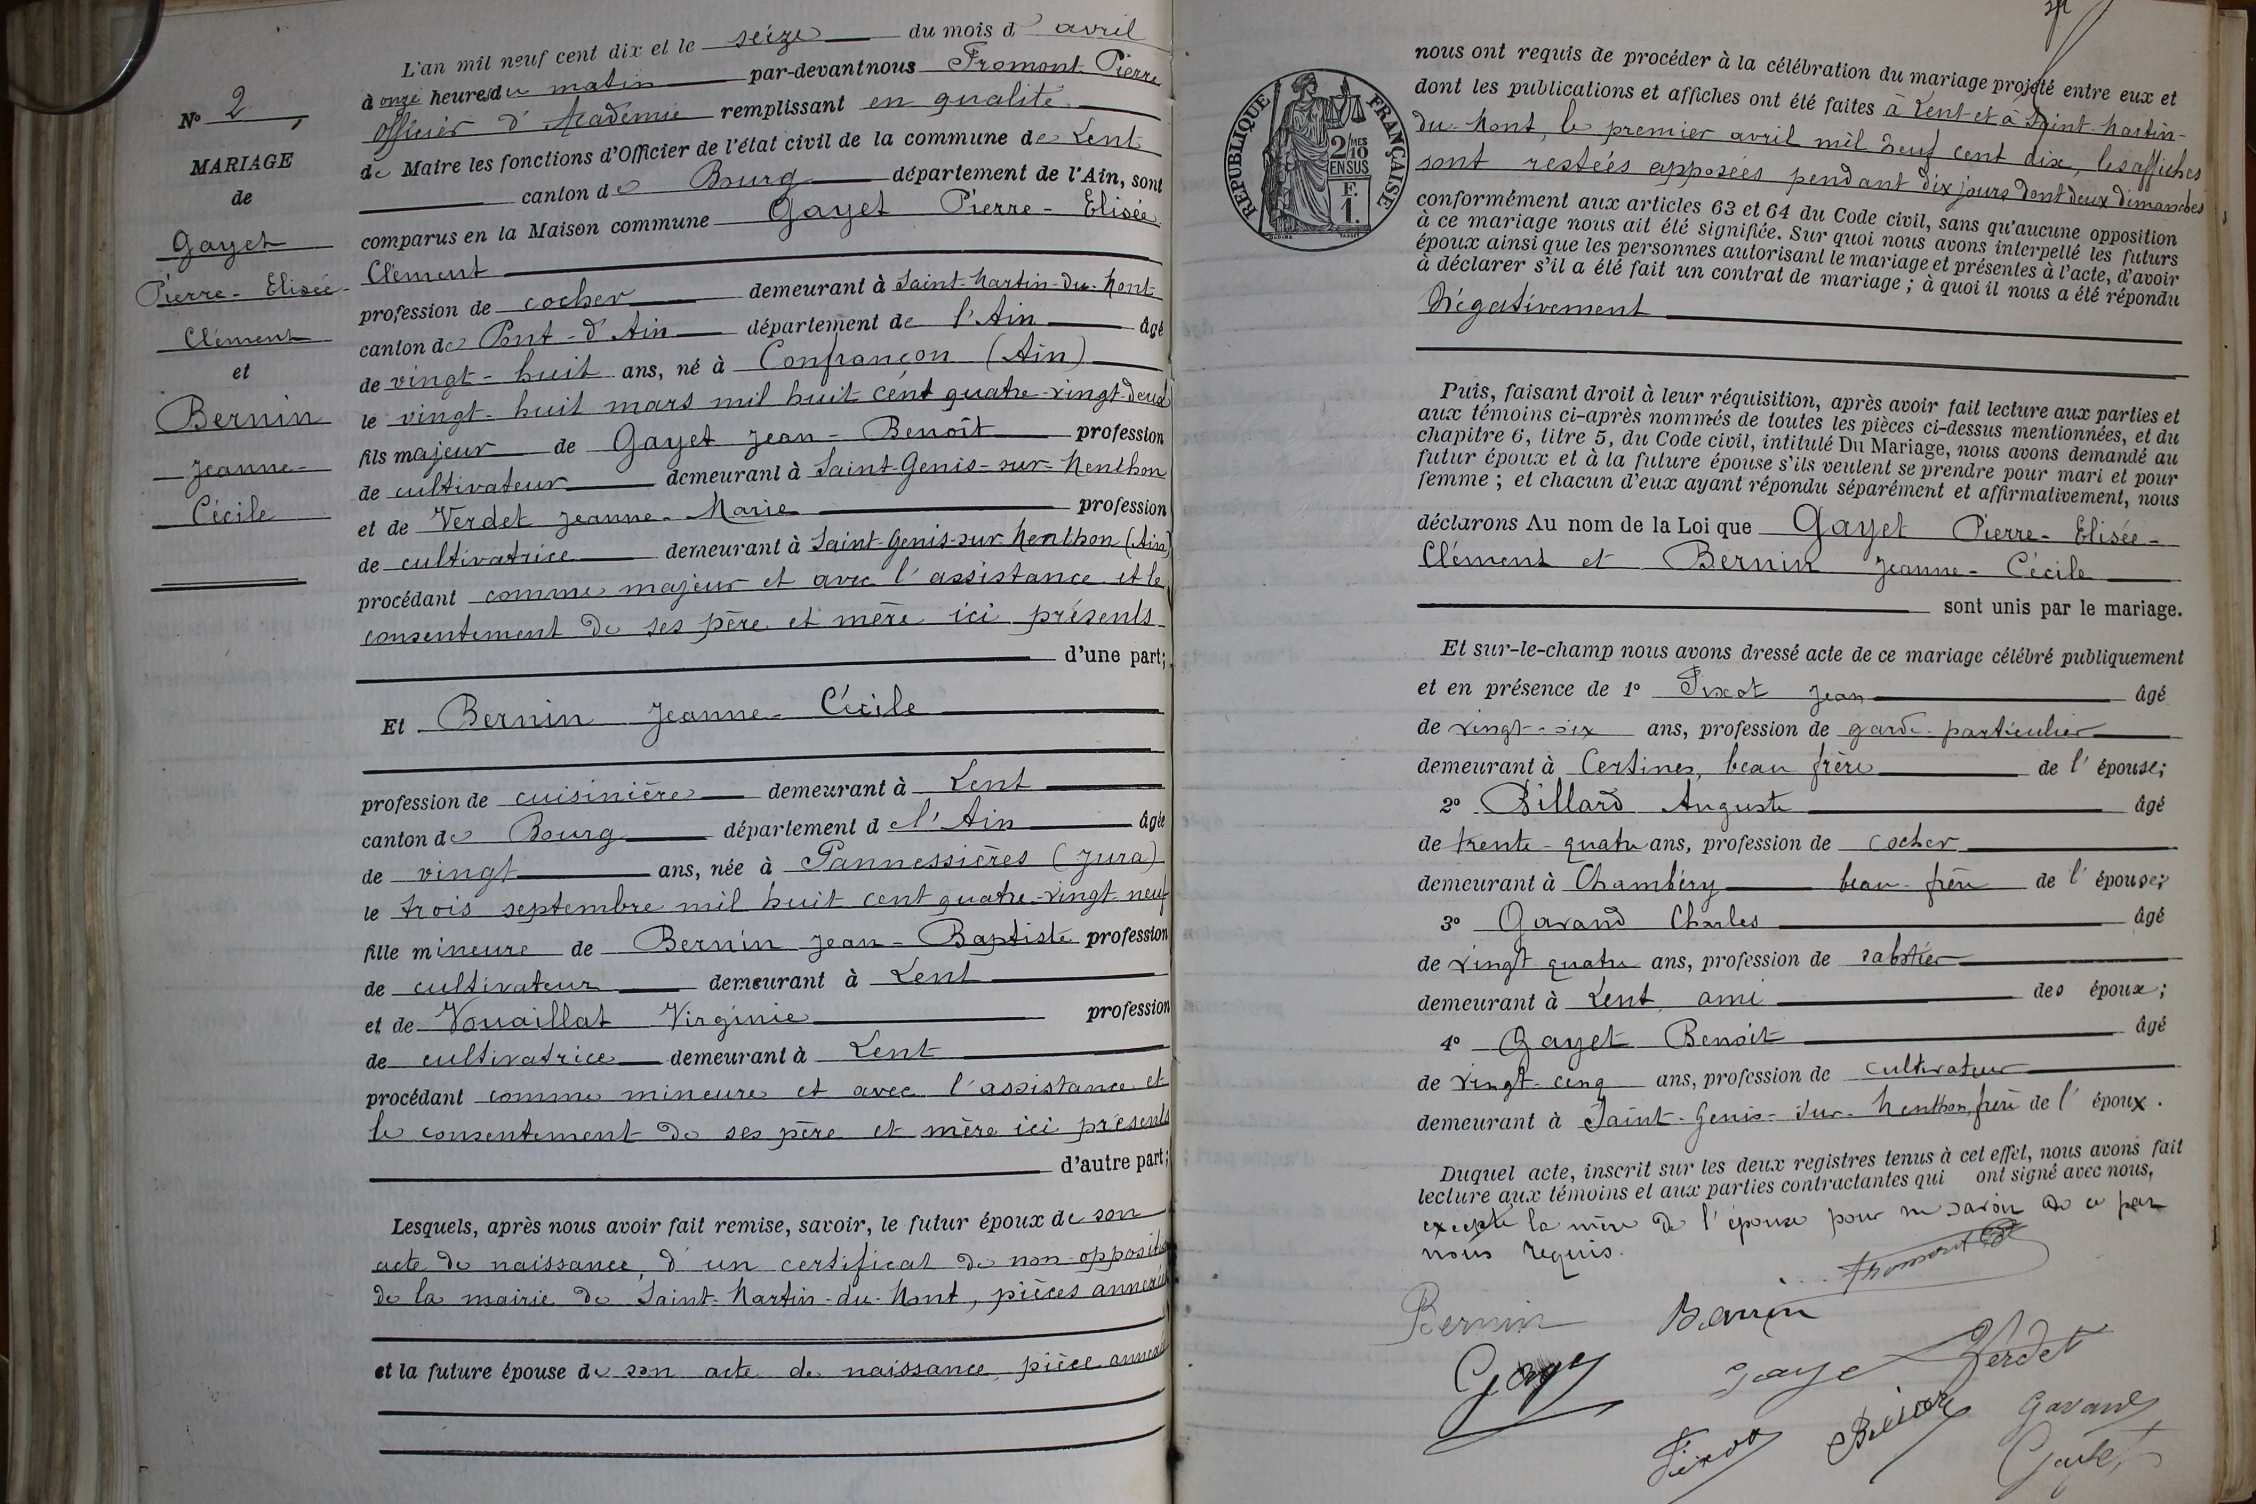 L'an mil neuf cent dix et le seize du mois d avril
à onze heures du matin par-devant nous Fromont Pierre
officier d'Académie remplissant en qualité
de Maire les fonctions d'Officier de l'état civil de la commune de Lent
canton de Bourg département de l'Ain, sont
comparus en la Maison commune Gayet Pierre-Elisée
Clément
profession de cocher demeurant à Saint-Martin-du-Mont
canton de Pont-d'Ain département de l'Ain âgé
de vingt-huit ans, né à Confrançon (Ain)
le vingt-huit mars mil huit cent quatre-vingt-deux
fils majeur de Gayet Jean-Benoît profession
de cultivateur demeurant à Saint-Genis-sur-Menthon
et de Verdet Jeanne-Marie profession
de cultivatrice demeurant à Saint-Genis-sur-Menthon (Ain)
procédant comme majeur et avec l'assistance et le
consentement de ses père et mère ici présents
d'une part;
Et Bernin Jeanne-Cécile
profession de cuisinière demeurant à Lent
canton de Bourg département d e l'Ain âgée
de vingt ans, née à Pannessières (Jura)
le trois septembre mil huit cent quatre-vingt-neuf
fille mineure de Bernin Jean-Baptiste profession
de cultivateur demeurant à Lent
et de Vouaillat Virginie profession
de cultivatrice demeurant à Lent
procédant comme mineure et avec l'assistance et
le consentement de ses père et mère ici présents
d'autre part;
Lesquels, après nous avoir fait remise, savoir, le futur époux de son
acte de naissance, d'un certificat de non-opposition
de la mairie de Saint-Martin-du-Mont, pièces annexées
et la future épouse de son acte de naissance, pièce annexée
No 2
MARIAGE
de
Gayet
Pierre-Elisée-
Clément
et
Bernin
Jeanne-
Cécile
RÉPUBLIQUE FRANÇAISE
2/10
MES
EN SUS
F.
1.
nous ont requis de procéder à la célébration du mariage projeté entre eux et
dont les publications et affiches ont été faites à Lent et à Saint-Martin-
du-Mont, le premier avril mil neuf cent dix, les affiches
sont restées apposées pendant dix jours dont deux dimanches
conformément aux articles 63 et 64 du Code civil, sans qu'aucune opposition
à ce mariage nous ait été signifiée. Sur quoi nous avons interpellé les futurs
époux ainsi que les personnes autorisant le mariage et présentes à l'acte, d'avoir
à déclarer s'il a été fait un contrat de mariage; à quoi il nous a été répondu
Négativement
Puis, faisant droit à leur réquisition, après avoir fait lecture aux parties et
aux témoins ci-après nommés de toutes les pièces ci-dessus mentionnées, et du
chapitre 6, titre 5, du Code civil, intitulé Du Mariage, nous avons demandé au
futur époux et à la future épouse s'ils veulent se prendre pour mari et pour
femme; et chacun d'eux ayant répondu séparément et affirmativement, nous
déclarons Au nom de la Loi que Gayet Pierre-Elisée-
Clément et Bernin Jeanne-Cécile
sont unis par le mariage.
Et sur-le-champ nous avons dressé acte de ce mariage célébré publiquement
et en présence de 1° Jean âgé
de vingt-six ans, profession de garde particulier
demeurant à Certines, beau frère de l'épouse;
2° Billard Auguste âgé
de trente-quatre ans, profession de cocher
demeurant à Chambéry beau-frère de l'épouse;
3° Gavand Charles âgé
de vingt quatre ans, profession de sabotier
demeurant à Lent ami des époux;
4° Gayet Benoit âgé
de vingt-cinq ans, profession de cultivateur
demeurant à Saint-Genis-sur-Menthon, frère de l'époux.
Duquel acte, inscrit sur les deux registres tenus à cet effet, nous avons fait
lecture aux témoins et aux parties contractantes qui ont signé avec nous,
excepté la mère de l'épouse pour ne savoir de ce par
nous requis.
Fromont
Bernin Bernin
Gayet Gayet Verdet
Gavand
Gayet